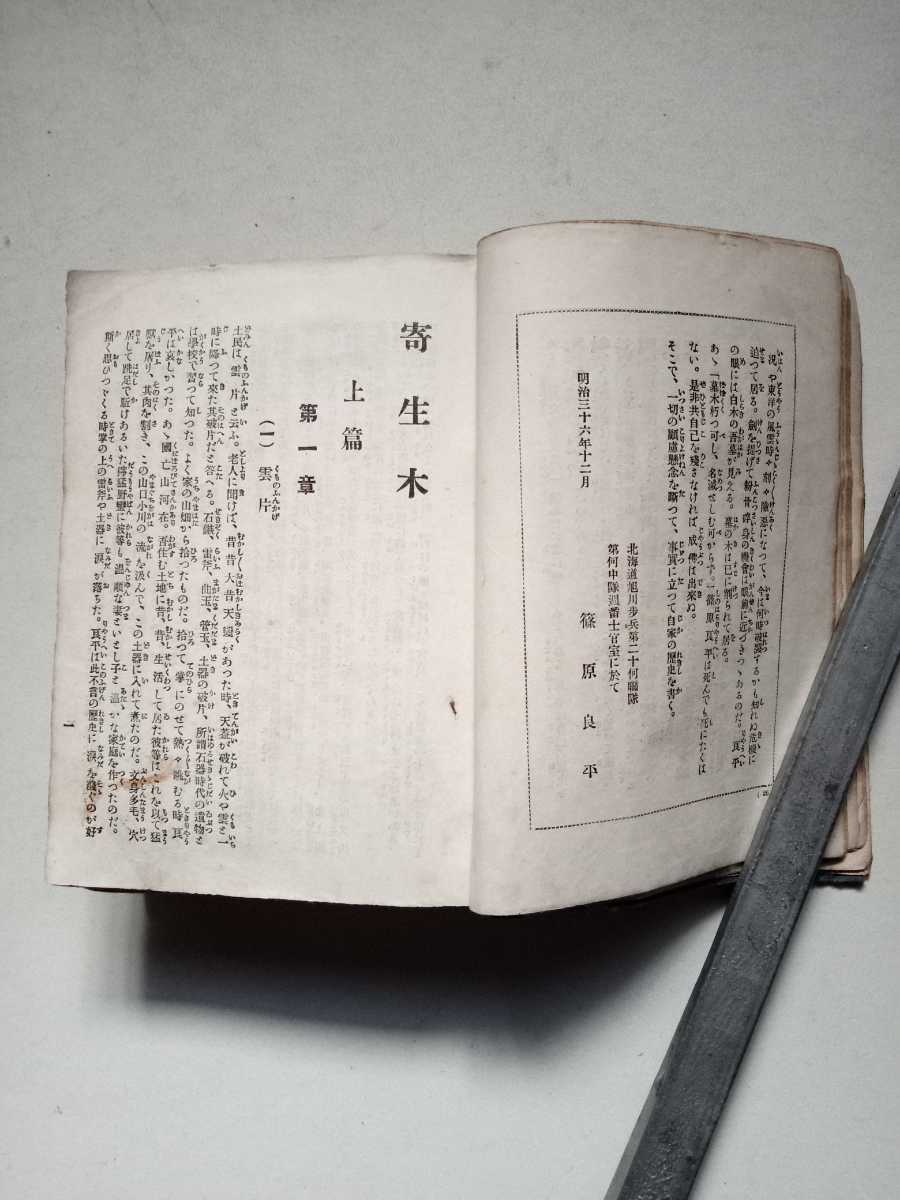 況や東洋の風雲時々刻々險惡になつて、今は何時破裂するかも知れぬ危機に
迫つて居る。劍を提げて粉骨碎身の機會は眼前に近づきつゝあるのだ。良平
の眼には白木の吾墓が見える。墓の木は已に削られて居る。
あゝ「墓木朽つ可し、名滅せしむ可からず。」篠原良平は死んでも死にたくは
ない。是非共自己を殘さなければ成佛は出來ぬ。
そこで、一切の顧慮懸念を斷つて、事實に立つて自家の歴史を書く。
明治三十六年十二月
北海道旭川步兵第二十何聯隊
第何中隊週番士官室に於て
篠原良平
寄生木
上篇
第一章
(一) 雲片
土民は雲片と云ふ。老人に聞けば、昔昔大昔天變があつた時、天蓋が破れて火や雲と一
時に降つて來た其破片だと答へる。石鏃、雷斧、曲玉、管玉、土器の破片、所謂石器時代の遺物と
は學校で習つて知つた。よく家の山畑から拾つたものだ。拾つて掌にのせて熟々眺むる時良
平は哀しかつた。あゝ國亡山河在。吾住む土地に昔、昔、生活して居た彼等はこれを以て猛
獸を屠り、其肉を割き、この山口小川の流を汲んで、この土器に入れて煮たのだ。文身多毛、穴
居して跣足で駈けあるいた獰猛野蠻に彼等も溫順な妻といとし子と溫かな家庭を作つたのだ。
斯く思ひつゞくる時掌の上の雷斧や土器に淚が落ちた。良平は此不言の歴史に淚を濺ぐのが好
一